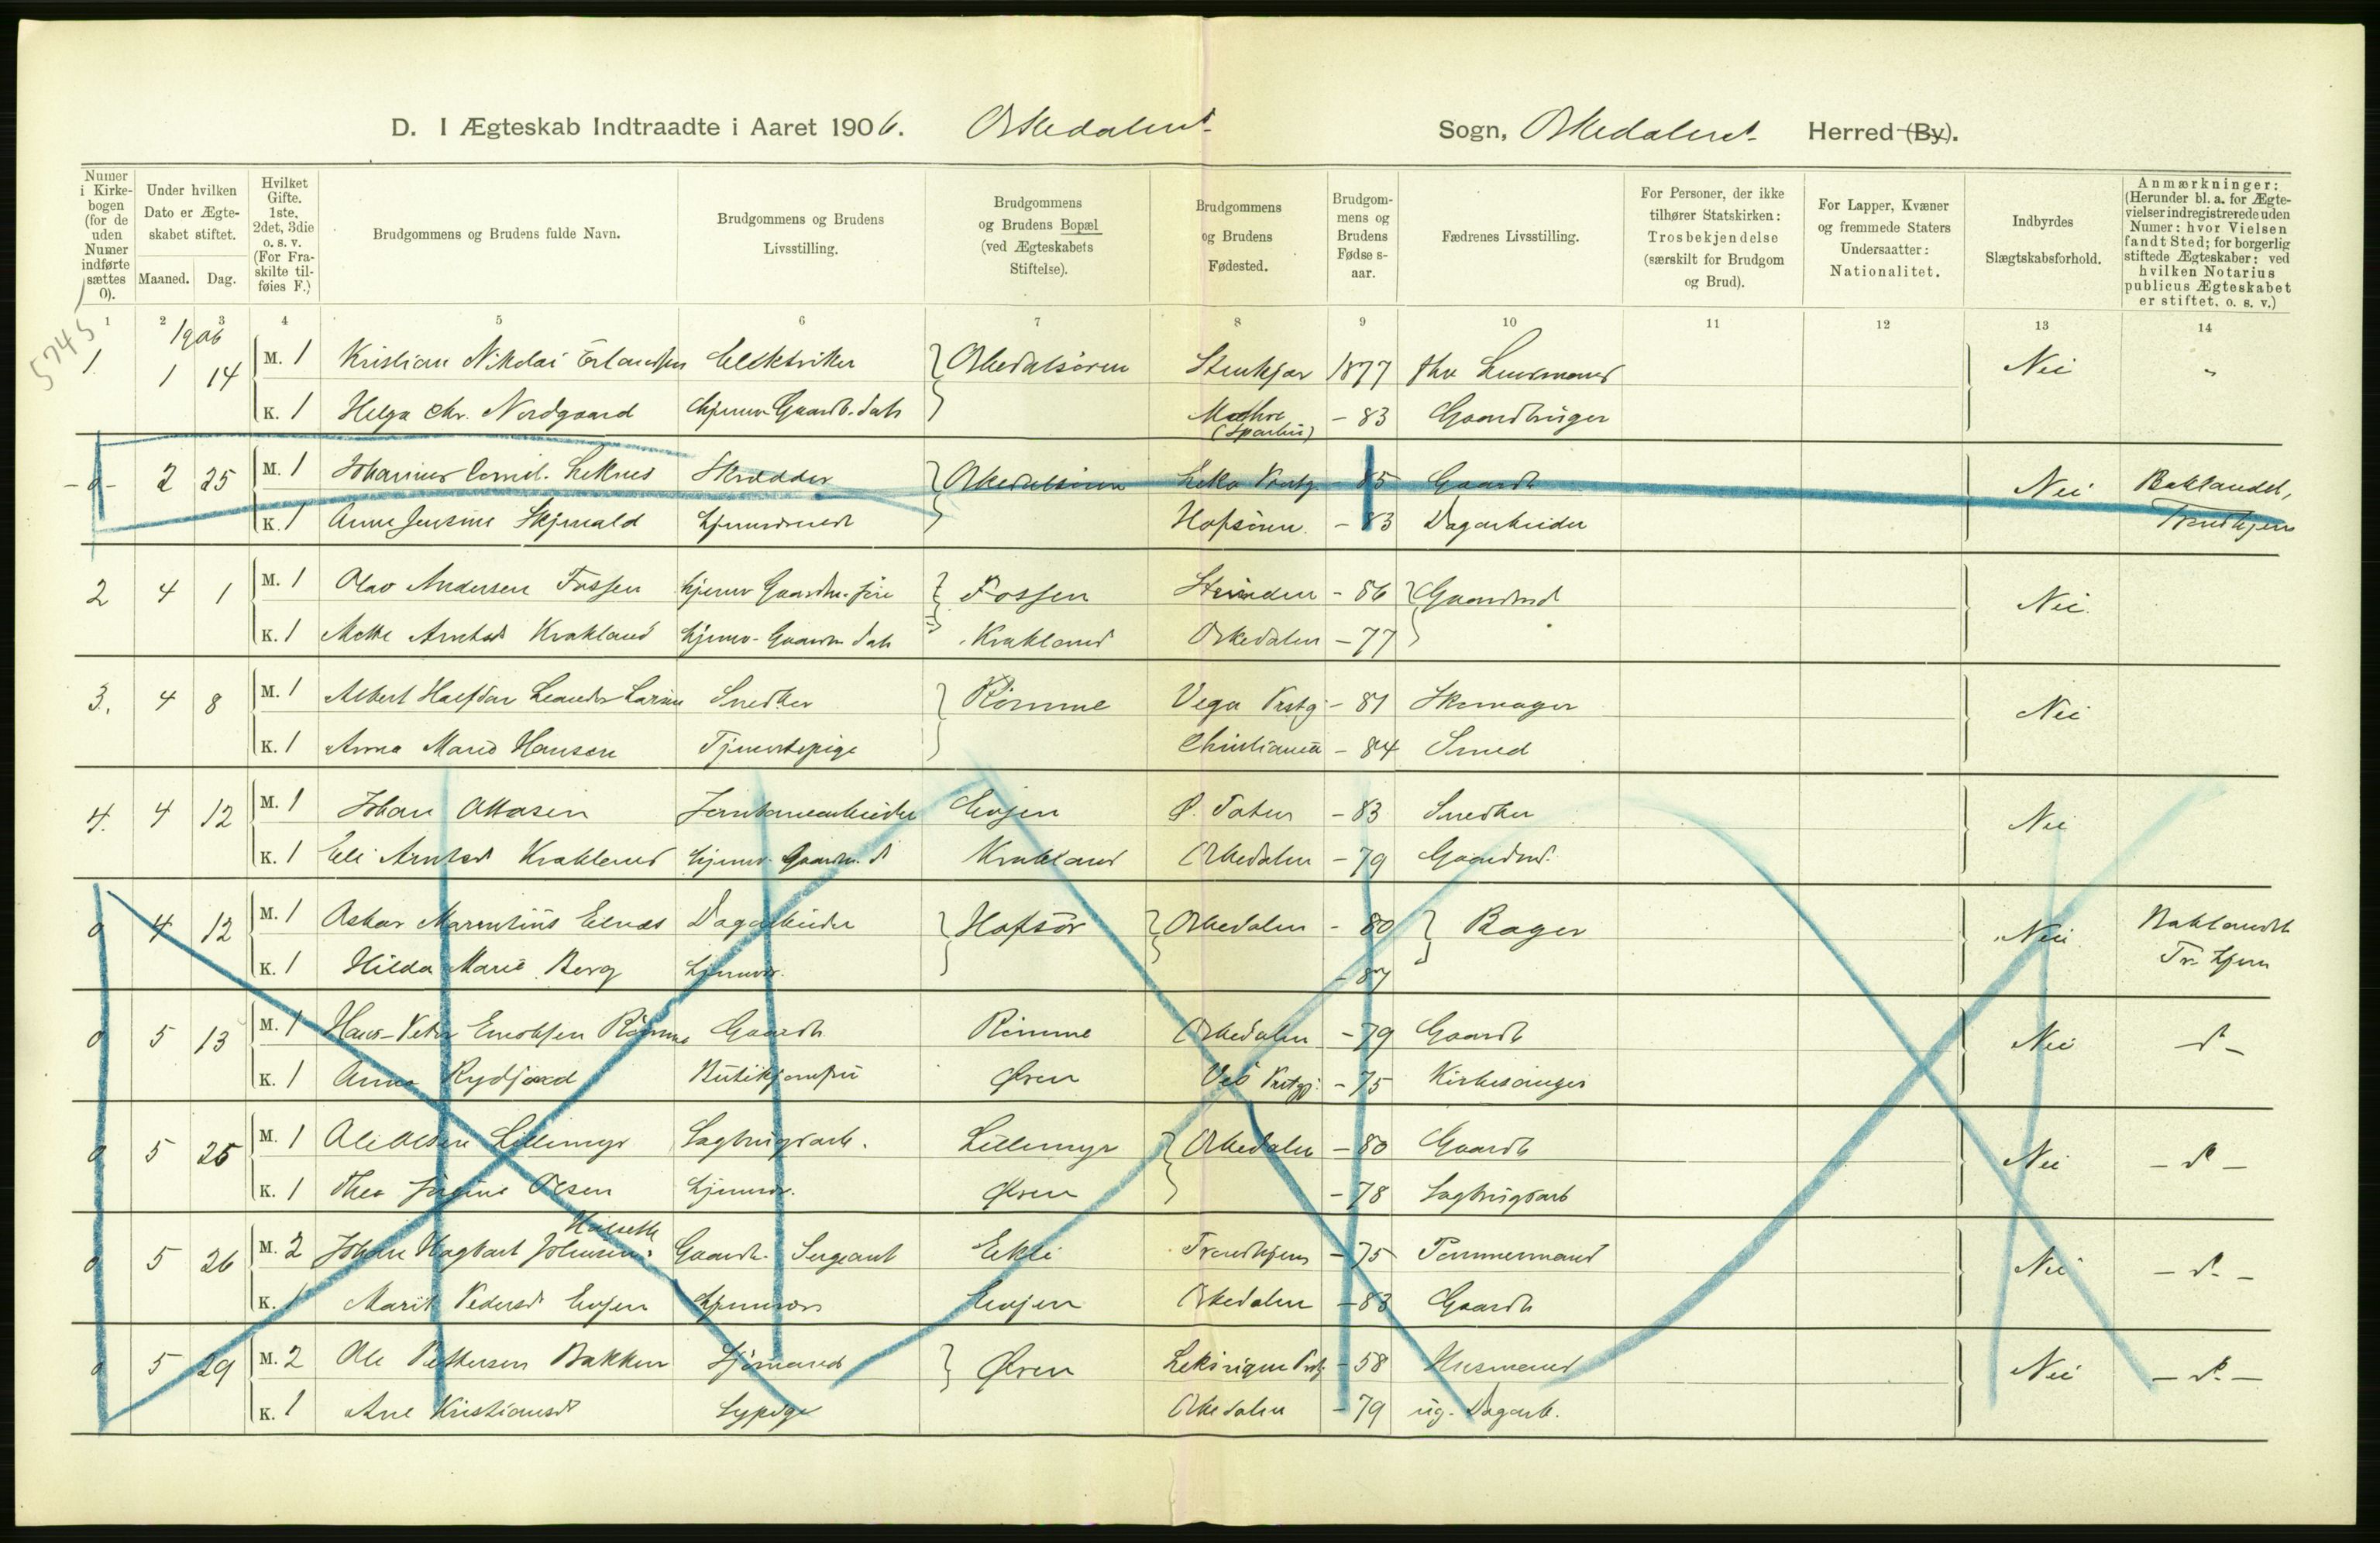 D. I Ægteskab Indtraadte i Aaret 1906. Orkedalens Sogn, Orkedalens Herred (By).
Numer i Kirkebogen (for de uden Numer indførte sættes 0).
Under hvilken Dato er Ægteskabet stiftet.
Maaned. Dag.
Hvilket Gifte. 1ste, 2det, 3die o. s. v. (For Fraskilte tilføies F.)
Brudgommens og Brudens fulde Navn.
Brudgommens og Brudens Livsstilling.
Brudgommens og Brudens Bopæl (ved Ægteskabets Stiftelse).
Brudgommens og Brudens Fødested.
Brudgommens og Brudens Fødselsaar.
Fædrenes Livsstilling.
For Personer, der ikke tilhører Statskirken: Trosbekjendelse (særskilt for Brudgom og Brud).
For Lapper, Kvæner og fremmede Staters Undersaatter: Nationalitet.
Indbyrdes Slægtskabsforhold.
Anmærkninger: (Herunder bl. a. for Ægtevielser indregistrerede uden Numer: hvor Vielsen fandt Sted; for borgerlig stiftede Ægteskaber: ved hvilken Notarius publicus Ægteskabet er stiftet, o. s. v.)
1 2 3 4 5 6 7 8 9 10 11 12 13 14
5745
1906
1 1 14 M. 1 Kristian Nikolai Erlandsen Elektriker Orkedalsøren Stenkjær 1877 Nei "
K. 1 Helga Chr. Nordgaard hjemmv. Gaardb. datr Mæhre (Sparbu) - 83 Gaardbruger
-0- 2 25 M. 1 Johannes Cornel. Leknes Skrædder Orkedalsøren Leka Prstg. - 85 Gaardb. Nei Baklandet,
K. 1 Anna Jensine Skjenald hjemmev. Hofsøren - 83 Dagarbeider Trondhjem
2 4 1 M. 1 Olav Andersen Fossen hjemv Gaardm. Fossen Strinden - 86 Gaardmd Nei
K. 1 Mette Arntsd Krokland hjemv- Gaardm datr Krokland Orkedalen - 77
3. 4 8 M. 1 Albert Halfdan Leander Larsen Snedker Rømme Vega Prstg - 81 Skomager Nei
K. 1 Anna Marie Hansen Tjenestepige Christiania - 84 Smed
4. 4 12 M. 1 Johan Ottosen Jernbanearbeider Evjen Ø. Toten - 83 Snedker Nei
K. 1 Eli Arntsd Krokland hjemv. Gaardm. d Krokland Orkedalen - 79 Gaardmd.
0 4 12 M. 1 Oskar Marentius Elnæs Dagarbeider Hofsør Orkedalen - 80 Bager Nei Baklandet
K. 1 Hilda Marie Berg hjemmv. - 87 Tr.hjem
0 5 13 M. 1 Hans-Peter Enoksen Rømme Gaardb Rømme Orkedalen - 79 Gaardb Nei - d -
K. 1 Anna Rydjord Butikjomfru Øren Veø Prstgj. - 75 Kirkesanger
0 5 25 M. 1 Ole Olsen Lillemyr Sagbrugsarb. Lillemyr Orkedalen - 80 Gaardb Nei - d -
K. 1 Thea Jørgine Olsen hjemmv. Øren - 78 Sagbrugsarb
0 5 26 M. 2 Johan Hagbart Johnsen Gaardb. Sergeant Eikli Trondhjem - 75 Tømmermand Nei - d. -
K. 1 Marit Pedersd Evjen hjemmev Evjen Orkedalen - 83 Gaardb
0 5 29 M. 2 Ole Pettersen Bakken Sjømand Øren Leksvigen Prstg - 58 Husmand Nei - d. -
K. 1 Ane Kristiansd Sypige Orkedalen - 79 ug. Dagarb.